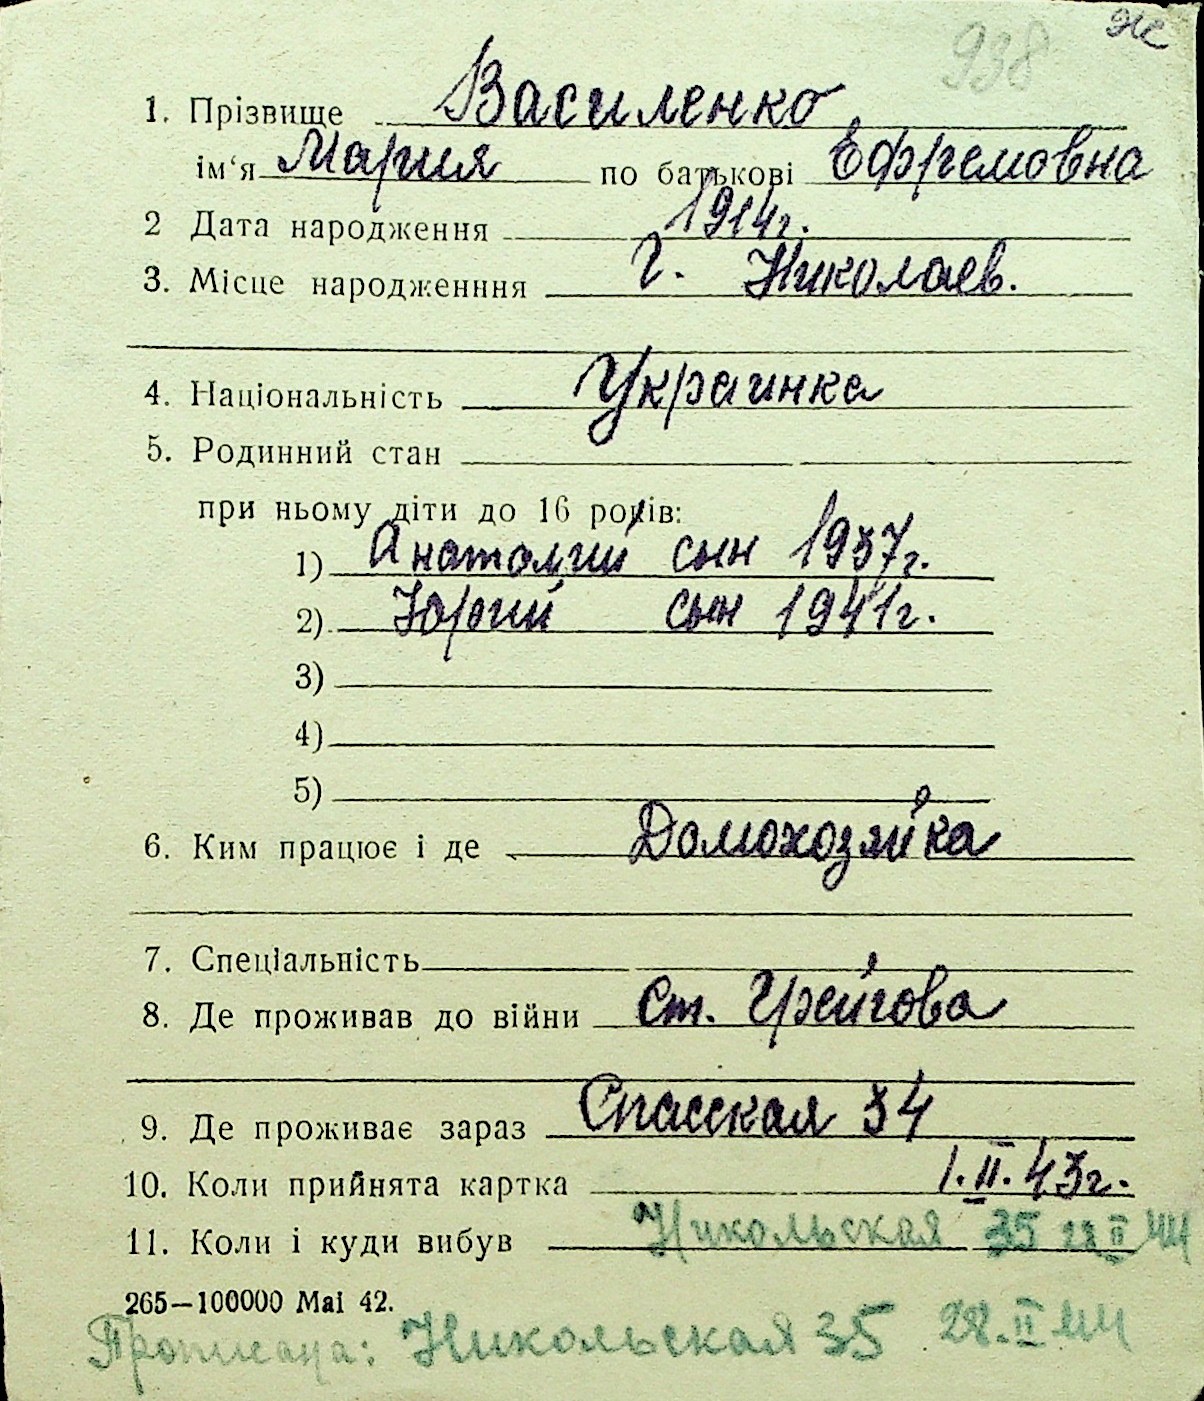 938 Ж
1. Прізвище Василенко
ім‘я Мария по батькові Ефремовна
2 Дата народження 1914г.
3. Місце народженння г. Николаев.
4. Національність Украинка
5. Родинний стан
при ньому діти до 16 років:
1) Анатолий сын 1937г.
2) Юрий сын 1941г.
3)
4)
5)
6. Ким працює і де Домохозяйка
7. Спеціальність
8. Де проживав до війни Ст. Грейгова
9. Де проживає зараз Спасская 34
10. Коли прийнята картка 1.II.43г.
11. Коли і куди вибув Никольская 35 28 II 44
265—100000 Mai 42.
Прописана: Никольская 35 28.II 44